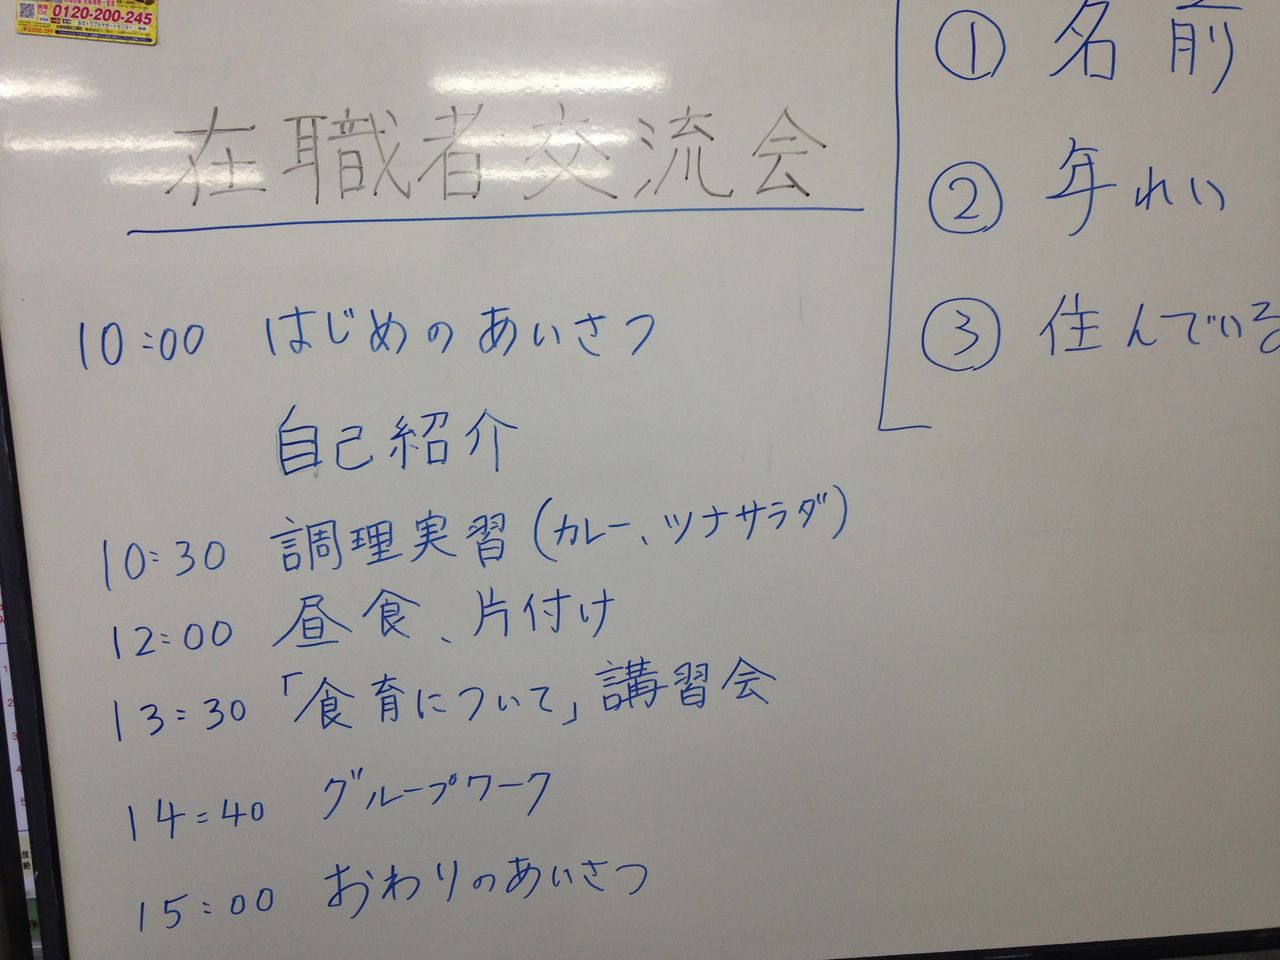 0120-200-245
在職者交流会
10:00 はじめのあいさつ
自己紹介
10:30 調理実習(カレー、ツナサラダ)
12:00 昼食、片付け
13:30 「食育について」講習会
14:40 グループワーク
15:00 おわりのあいさつ
① 名前
② 年れい
③ 住んでいる